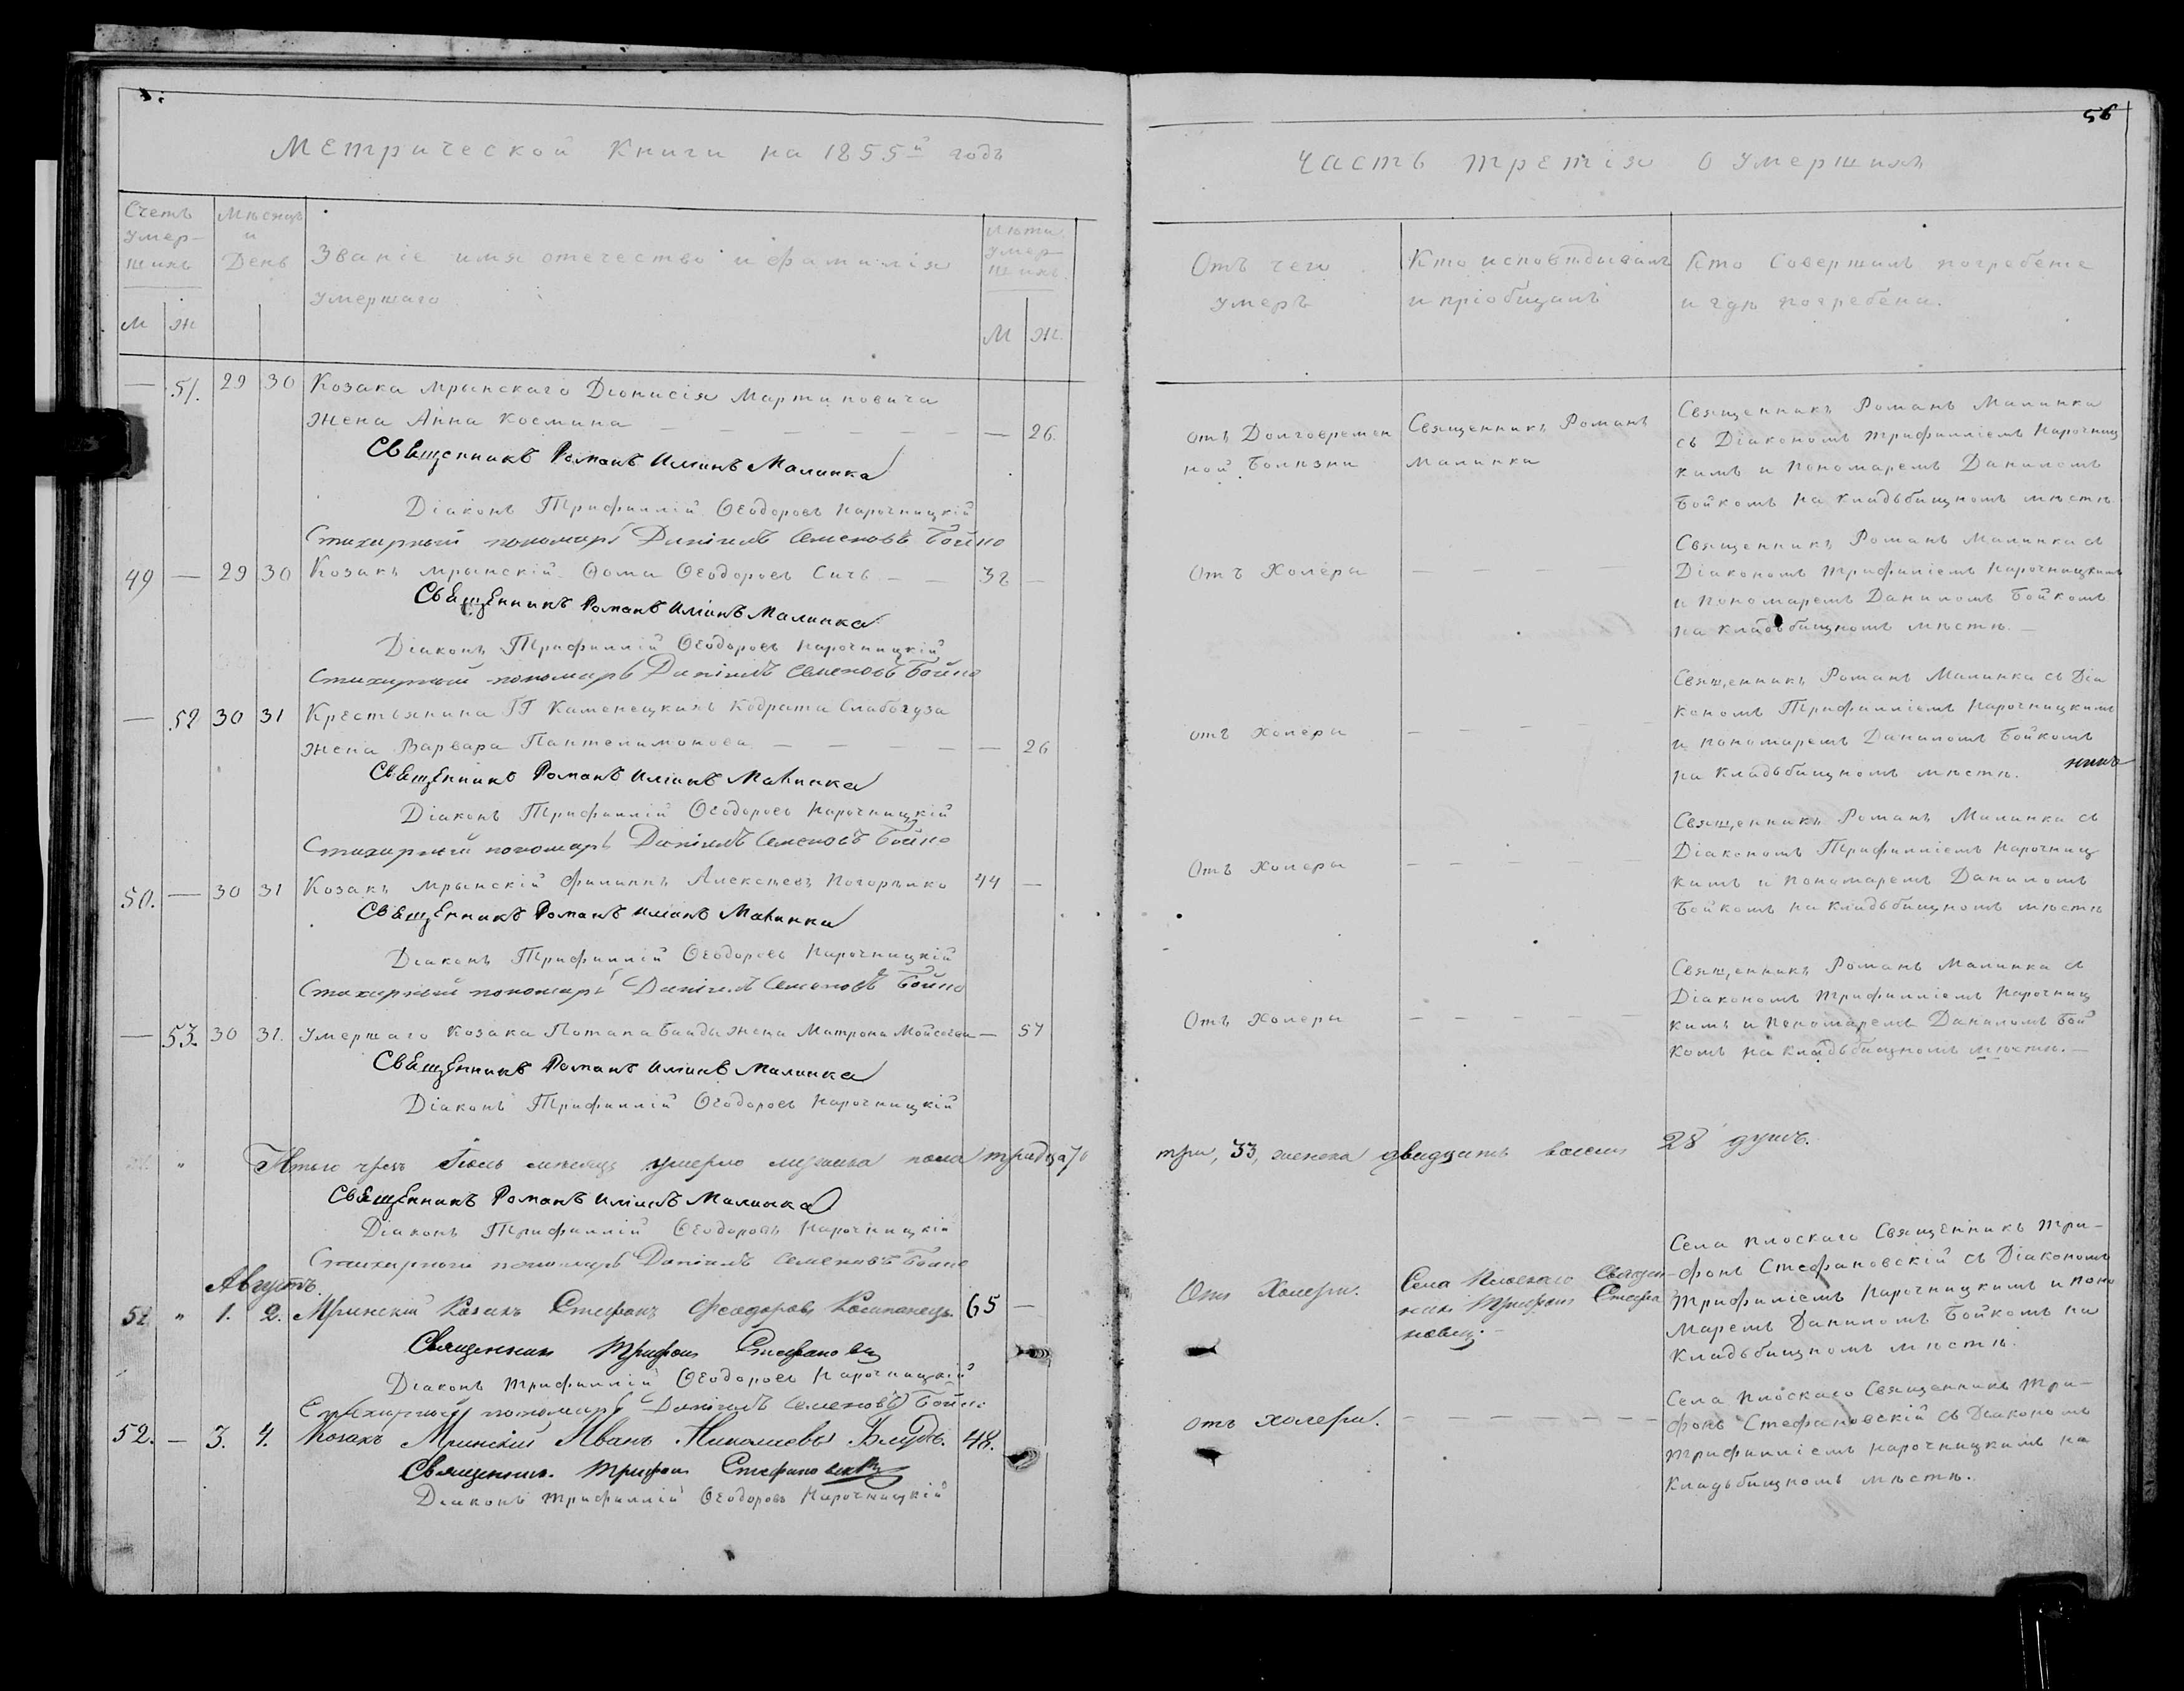 Метрической Книги на 1855й годъ
Счетъ умер-шихъ
М
Ж
Мѣсяцъ и День
Званіе имя отечество и фамилія
умершаго
Лѣта умер-шихъ.
М
Ж.
51. 29 30 Козака Мрынскаго Діонисія Мартиновича
жена Анна Космина — 26.
Священникъ Романъ Иліинъ Малинка
Діаконъ Трифиллій Ѳеодоровъ Нарочницкій
Стихарный пономарь Даніилъ Семеновъ Бойко
49 — 29 30 Козакъ Мрынскій Ѳома Ѳеодоровъ Сичъ — 38 —
Священникъ Романъ Иліинъ Малинка
Діаконъ Трифиллій Ѳеодоровъ Нарочницкій
Стихарный пономарь Даніилъ Семеновъ Бойко
— 52 30 31 Крестьянина ГГ Каменецкихъ Кодрата Слабогуза
жена Варвара Пантелимонова — 26
Священникъ Романъ Иліинъ Малинка
Діаконъ Трифиллій Ѳеодоровъ Нарочницкій
Стихарный пономарь Даніилъ Семеновъ Бойко
50. — 30 31 Козакъ Мрынскій Филиппъ Алексѣевъ Погорѣлко 44 —
Священникъ Романъ Иліинъ Малинка
Діаконъ Трифиллій Ѳеодоровъ Нарочницкій
Стихарный пономарь Даніилъ Семеновъ Бойко
— 53. 30 31. Умершаго Козака Потапа Байды жена Матрона Мойсеева — 57
Священникъ Романъ Иліинъ Малинка
Діаконъ Трифиллій Ѳеодоровъ Нарочницкій
Итого чрезъ Іюль мѣсяцъ умерло мужеска пола тридцать
Священникъ Романъ Иліинъ Малинка
Діаконъ Трифиллій Ѳеодоровъ Нарочницкій
Стихарный пономарь Даніилъ Семеновъ Бойко
Августъ.
51 " 1. 2. Мринскій Козакъ Стефанъ Феодоровъ Компанецъ. 65 —
Священникъ Трифонъ Стефановскій
Діаконъ Трифиллій Ѳеодоровъ Нарочницкій
Стихарный пономарь Даніилъ Семеновъ Бойко
52. — 3. 4. Козакъ Мринскій Иванъ Николаевъ Блудъ. 48.
Священникъ Трифонъ Стефановскій
Діаконъ Трифиллій Ѳеодоровъ Нарочницкій
56
Часть третія о умершихъ
Отъ чего
умеръ
Кто исповѣдывалъ
и пріобщалъ
Кто Совершалъ погребеніе
и гдѣ погребены.
Отъ Долговремен
ной Болѣзни
Священникъ Романъ
Малинка
Священникъ Романъ Малинка
съ Діакономъ Трифилліемъ Нарочниц
кимъ и Пономаремъ Даниломъ
Бойкомъ на Кладьбищномъ мѣстѣ
Отъ Холеры — — — —
Священникъ Романъ Малинка съ
Діакономъ Трифиліемъ Нарочницкимъ
и Пономаремъ Даниломъ Бойкомъ
на Кладьбищномъ мѣстѣ. —
отъ холеры — — — —
Священникъ Романъ Малинка съ Діа
кономъ Трифилліемъ Нарочницкимъ
и пономаремъ Даниломъ Бойкомъ
на Кладьбищномъ мѣстѣ.
Отъ Холеры — — — —
Священникъ Романъ Малинка съ
Діакономъ Трифилліемъ Нарочниц
кимъ и Пономаремъ Даниломъ
Бойкомъ на Кладьбищномъ мѣстѣ
Отъ Холеры — — — —
Священникъ Романъ Малинка съ
Діакономъ Трифилліемъ Нарочниц
кимъ и Пономаремъ Даниломъ Бой
комъ на Кладьбищномъ мѣстѣ. —
три, 33, женска двадцать восемь 28 душъ.
Отъ Холеры.
Села Плоскаго Священ-
никъ Трифонъ Стефа
новскій. —
Села Плоскаго Священникъ Три-
фонъ Стефановскій съ Діакономъ
Трифиліемъ Нарочницкимъ и Поно
маремъ Даниломъ Бойкомъ на
Кладьбищномъ мѣстѣ.
отъ холеры. — — — —
Села Плоскаго Священникъ Три-
фонъ Стефановскій съ Діакономъ
Трифилліемъ Нарочницкимъ на
Кладьбищномъ мѣстѣ.